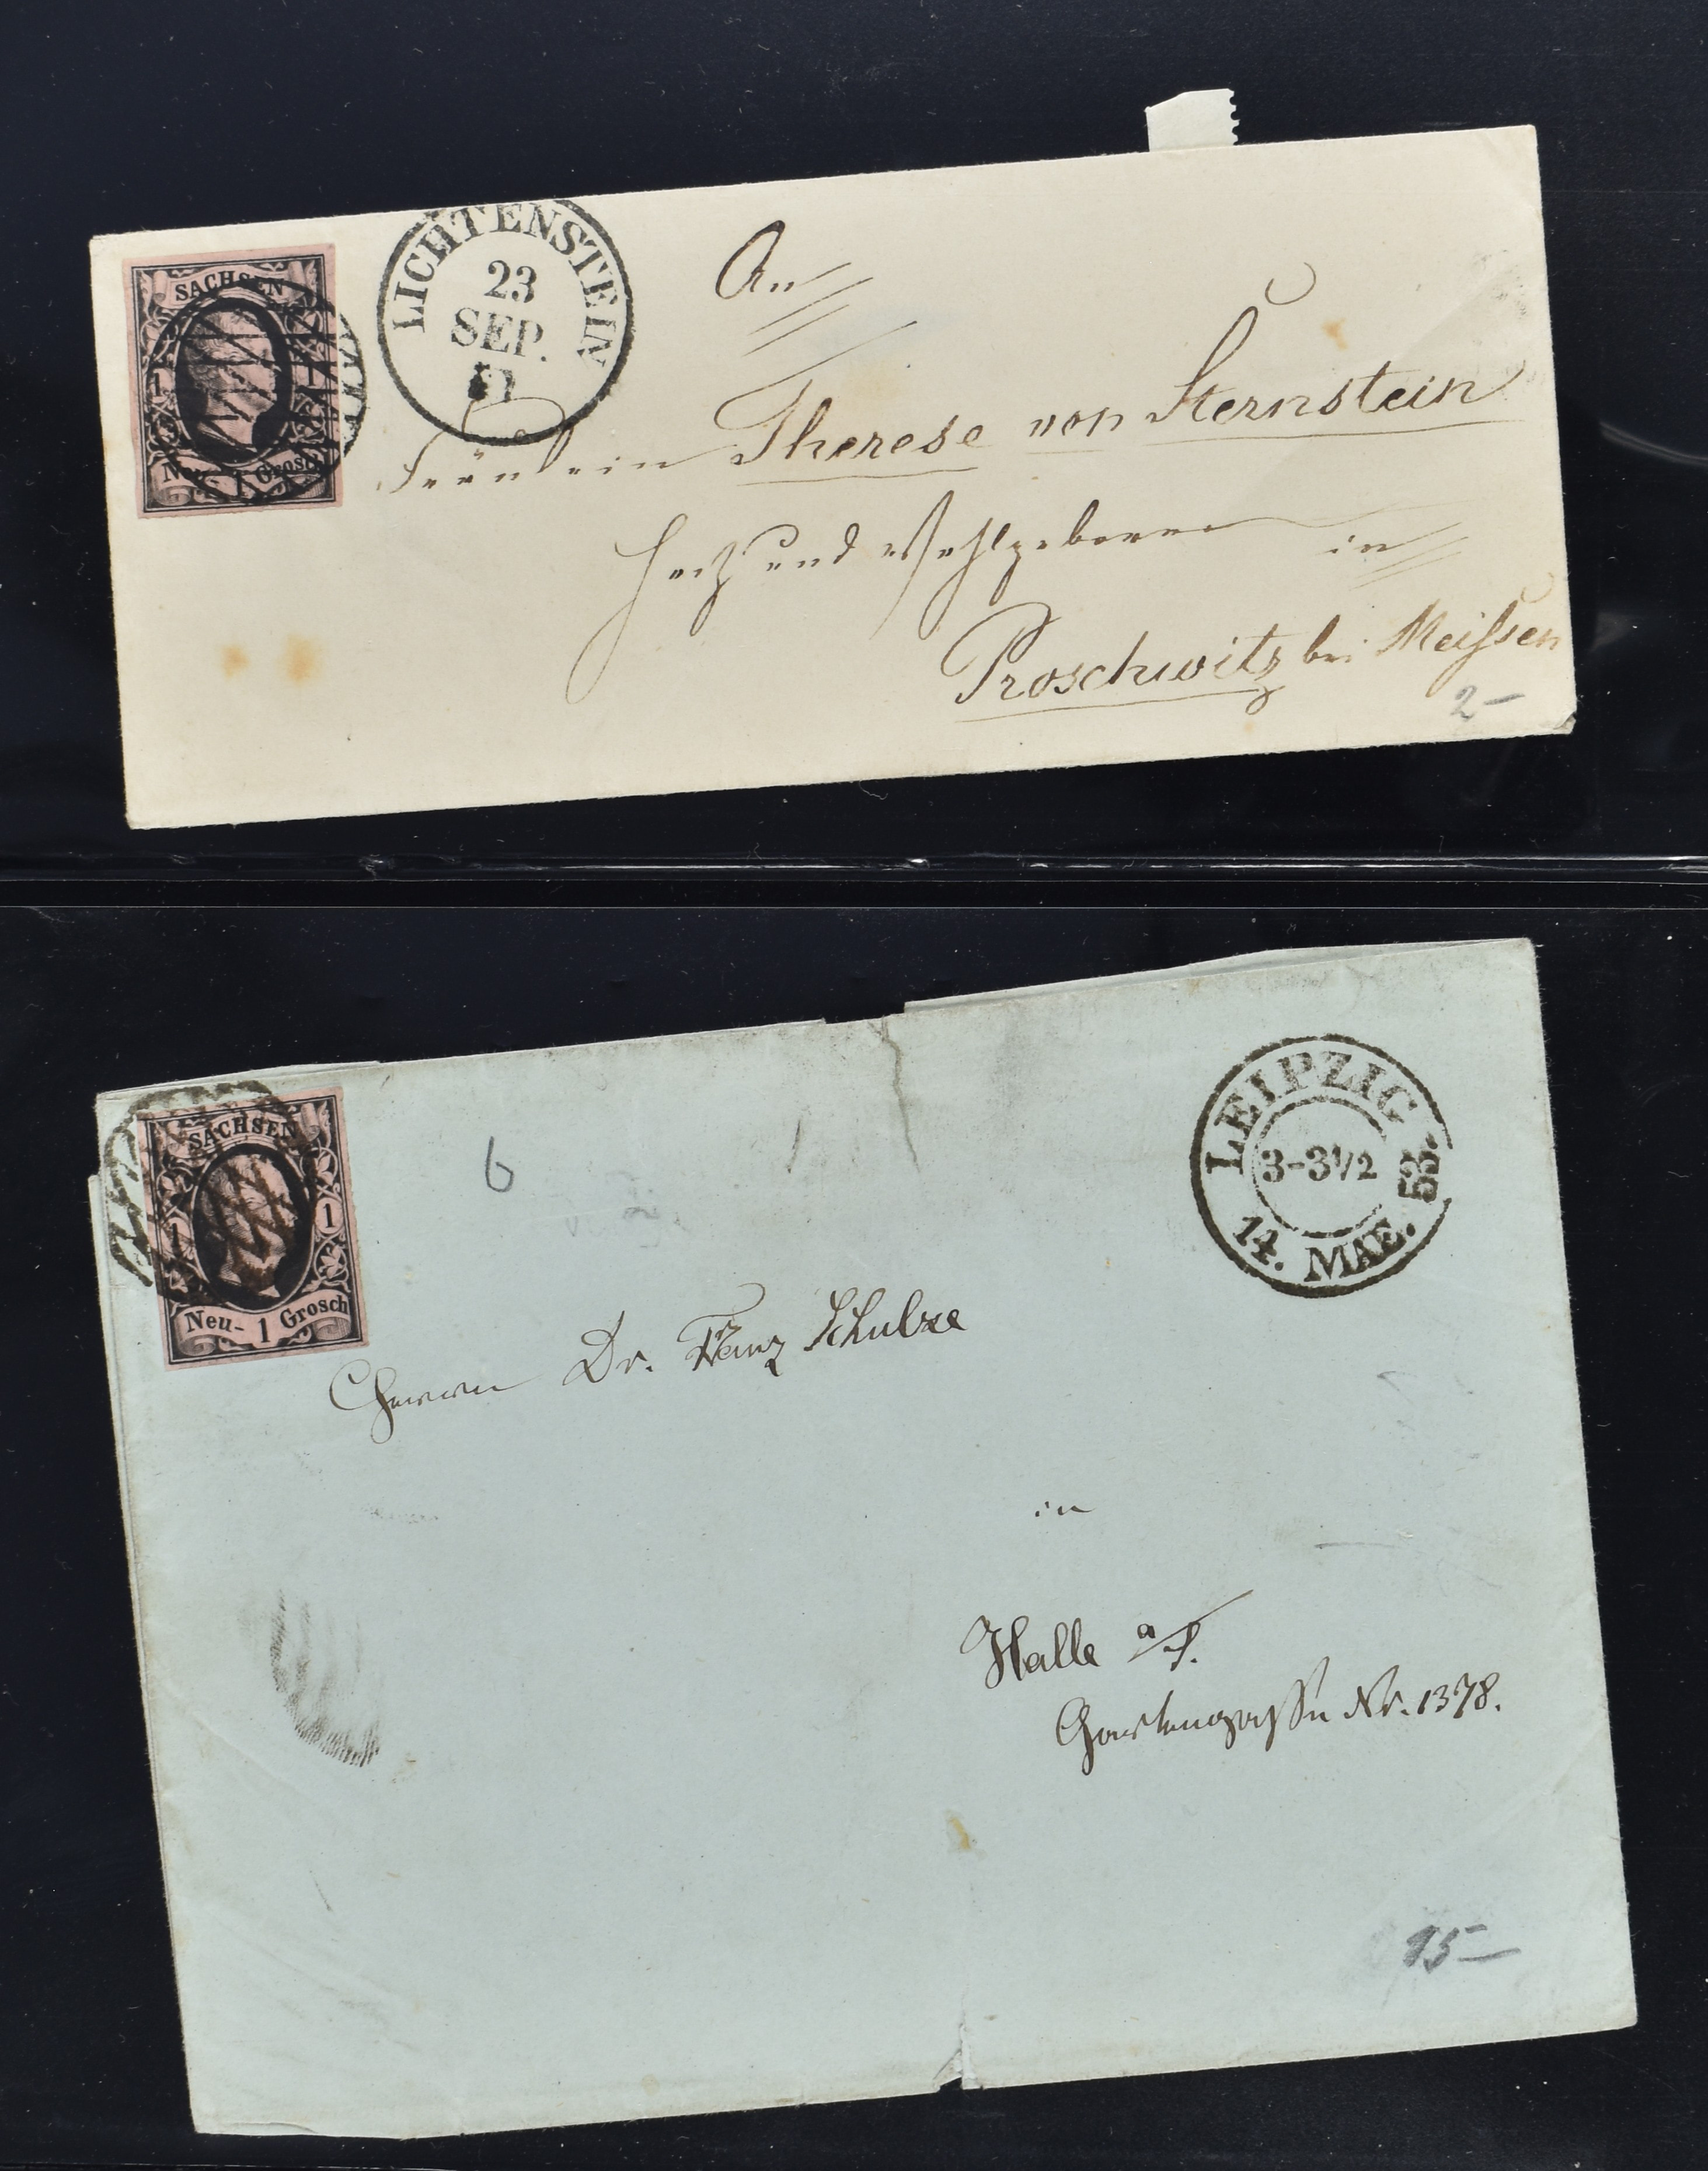 SACHSEN
1 1
Neu- 1 Grosch
LICHTENSTEIN
23
SEP.
An
Fräulein Therese von Sternstein
Hoch und Wohlgeboren
in
Proschwitz bei Meissen
2-
SACHSEN
1 1
Neu- 1 Grosch
6
LEIPZIG
3-3½
14. MAE. 53.
Herrn Dr. Franz Schulze
in
Halle a/S.
Gartengasse Nr. 1378.
95-